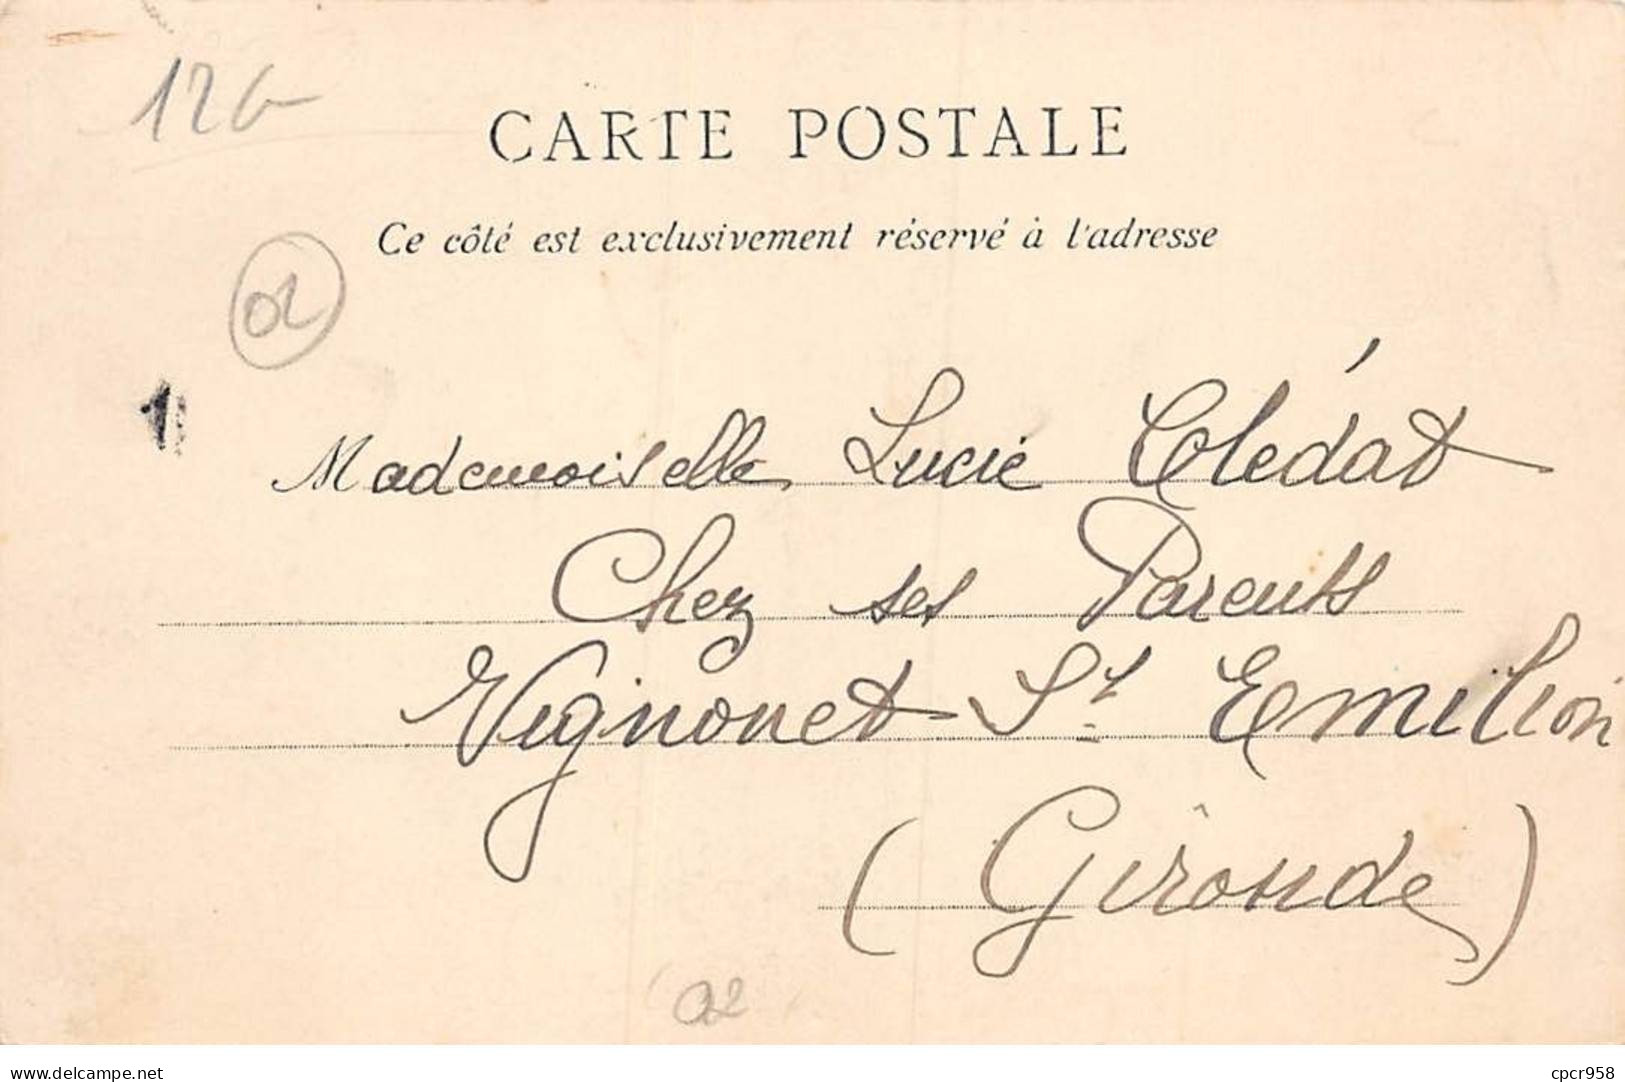 12G
CARTE POSTALE
Ce côté est exclusivement réservé à l'adresse
OL
1
Mademoiselle Lucie Colédat
Chez ses Parents
Vignonet St Emilion
(Gironde)
02
www.delcampe.net
cpcr958